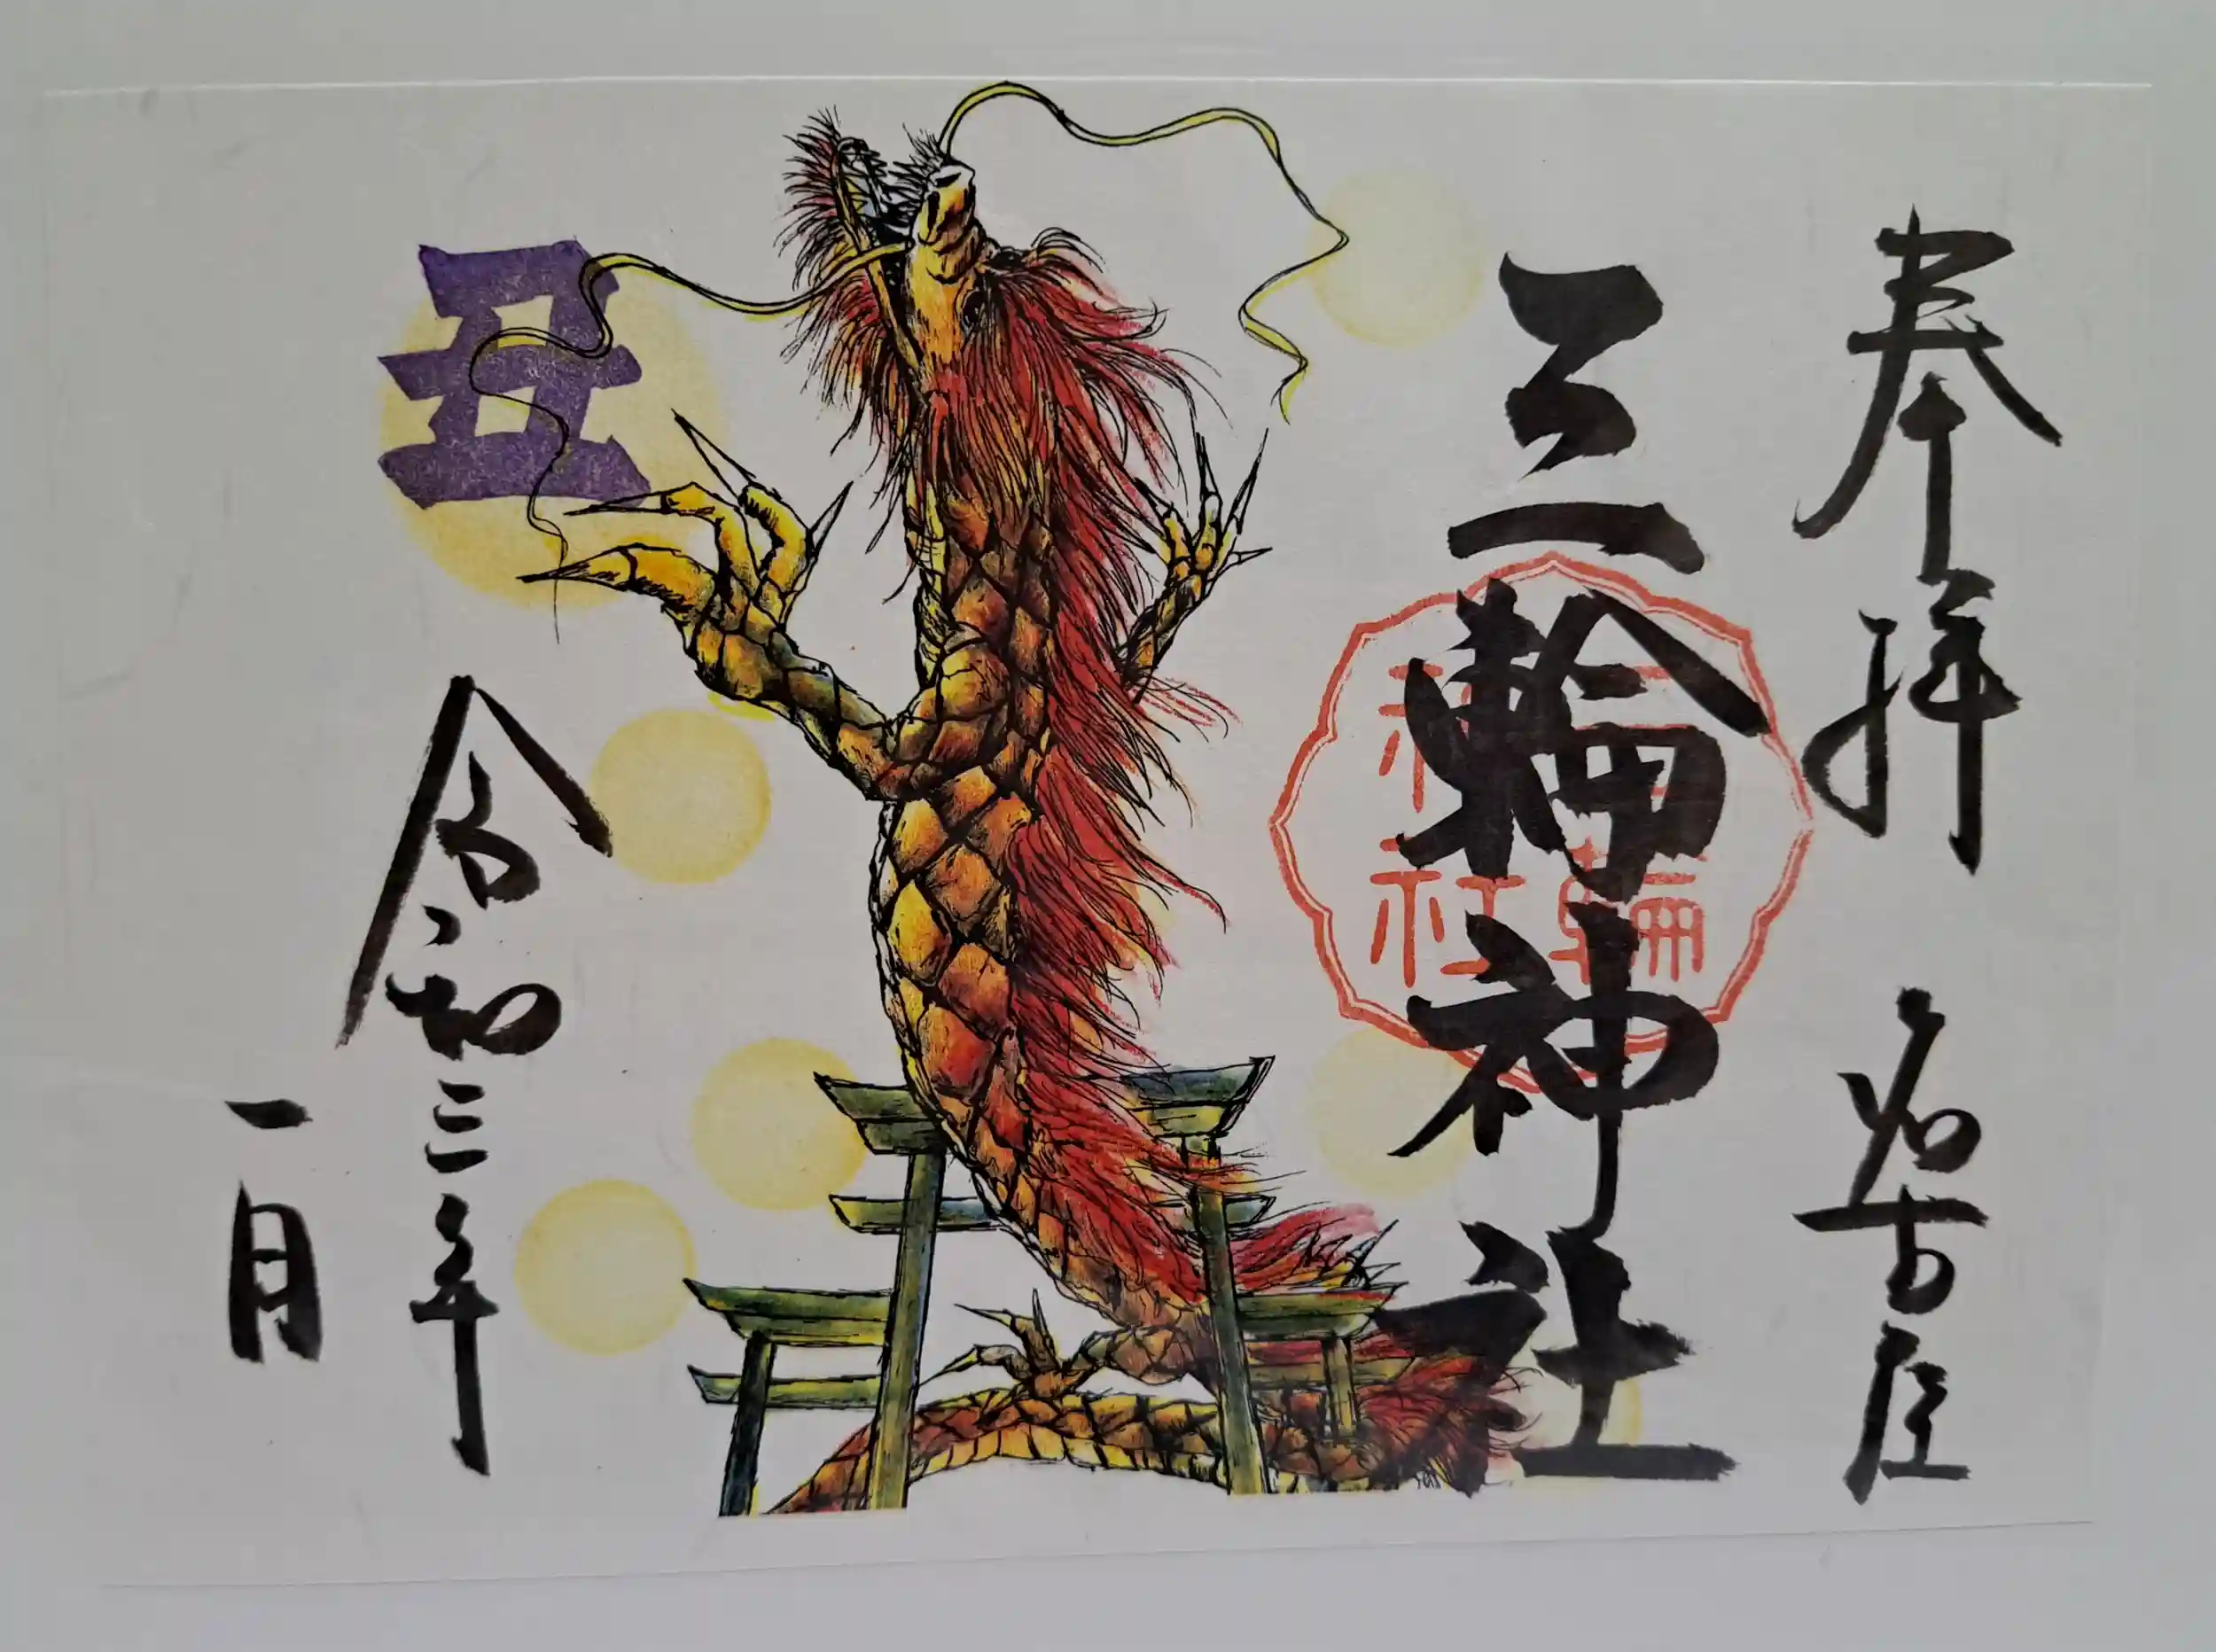 奉拝 名古屋
三輪神社
三輪神社
丑
令和三年
一月